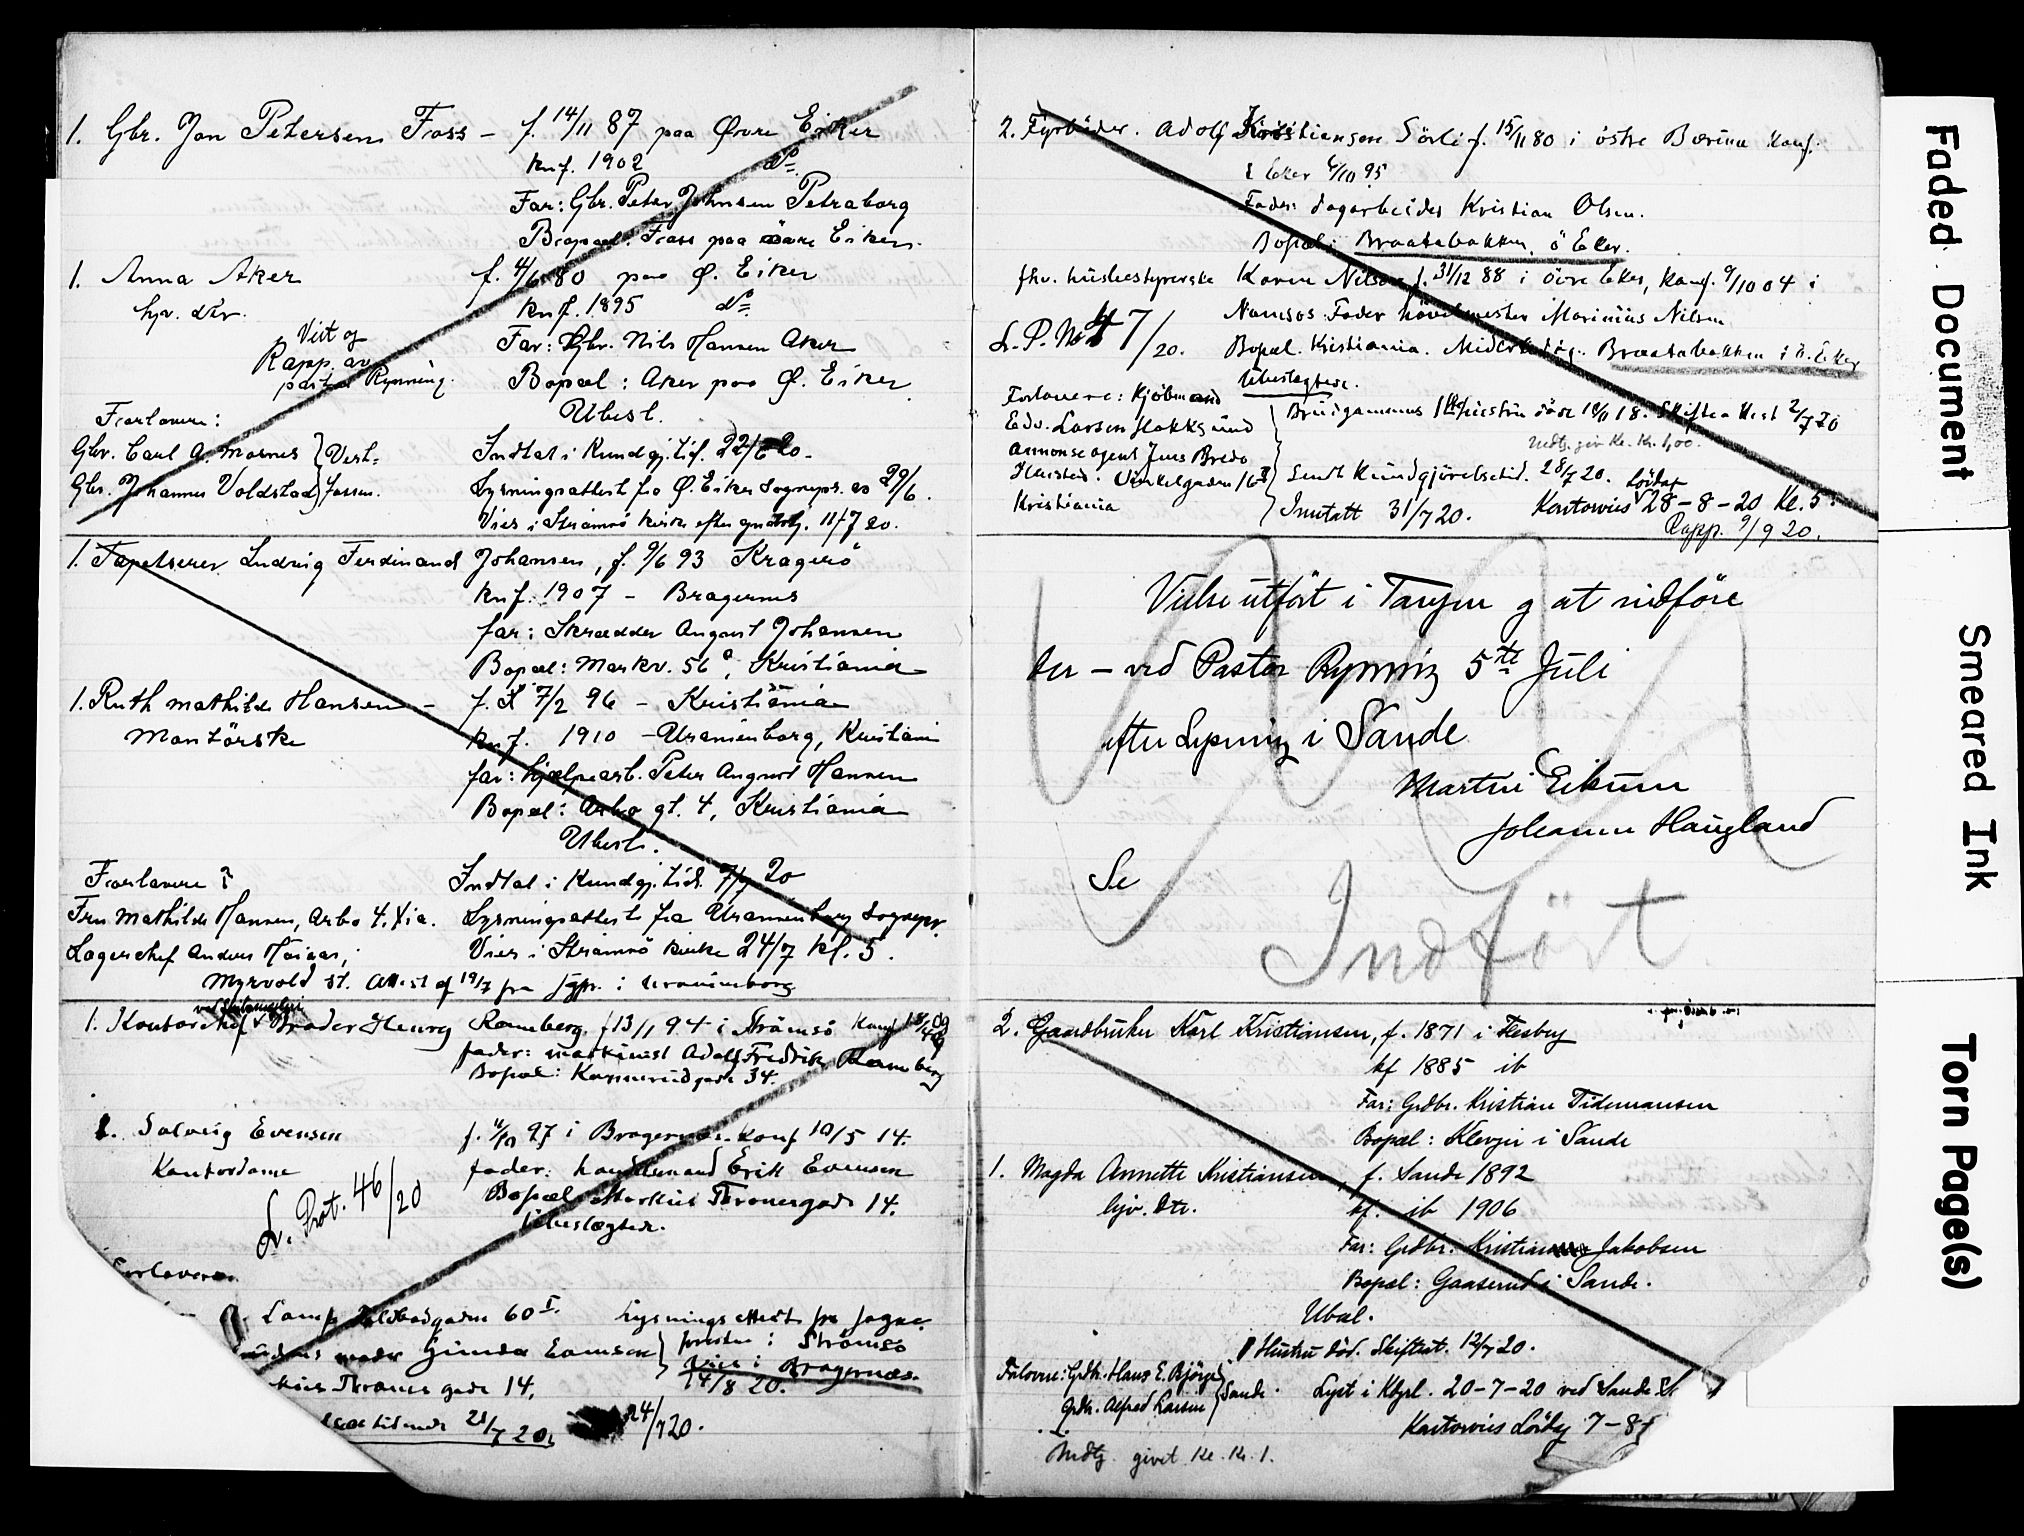 1. Gbr. Jon Petersen Foss – f. 14/11 87 paa Øvre Eiker
knf. 1902 do
Far: Gbr. Peter Johnsen Petraborg
Bopæl: Foss paa Øvre Eiker.
1. Anna Aker f. 4/6 80 paa Ø. Eiker
hjv. dtr. knf. 1895 do
Viet og
Rapp. av
pastor Rynning.
Far: Gbr. Nils Hansen Aker
Bopæl: Aker paa Ø. Eiker
Ubesl.
Forlovere:
Gbr. Carl A. Mornes } Vest-
Gbr. Johannes Voldstad } fossen.
Indtat i Kundgj. tid. 22/6 20.
Lysningsattest fra Ø. Eiker Sognepr. av 29/6.
Vies i Strømsö kirke efter gudstj. 11/7 20.
1. Tapetserer Ludvig Ferdinand Johansen, f. 9/6 93 Kragerö
knf. 1907 – Bragernes
far: Skrædder August Johansen
Bopæl: Markv. 56 a, Kristiania
1. Ruth Mathilde Hansen – f. 7/2 96 – Kristiania
Montörske
knf. 1910 – Uranienborg, Kristiania
far: hjælpearb. Peter August Hansen
Bopæl: Arbo gt. 4, Kristiania
Ubesl.
Forlovere:
Fru Mathilde Hansen, Arbo 4. Kia.
Lagerchef Anders
Myrvold st.
Indtat i Kundgj. tid. 7/7 20
Lysningsattest fra Uranienborg Sognepr.
Vies i Strømsö kirke 24/7 kl. 5.
Attest af 19/7 fra sgpr. i Uranienborg
1. Kontorchef Broder Henry Ramberg. f. 13/1 94 i Strömsö Konf.
fader: maskinist Adolf Fredrik Ramberg
Bopæl: 34.
1. Solveig Evensen f. 97 i Bragernes. Konf 10/5 14.
Kontordame
fader: handelsmand Erik Evensen
Bopæl Markus Thranesgade 14.
Ubeslægtede.
L. Prot. 46/20
Forlovere
60 I.
moder Gunda Evensen
Thranes gade 14.
tidende 21/7 20.
Lysningsattest fra sogne-
presten i Strömsö
Vies i Bragernæs.
14/8 20.
24/7 20.
2. Fyrböder. Adolf Kristiansen Sörli f. 15/11 80 i östre Bærum Konf.
i Eker 6/10 95
Fader: dagarbeider Kristian Olsen.
Bopæl: Braatabakken ö Eker.
fhv. husbestyrerske Karen Nilsen f. 31/12 88 i övre Eker, Konf. 9/10 04 i
Namsos Fader hövelmester Marinius Nilsen
L. P. No 47/20.
Bopæl. Kristiania. Braatabakken i ö. Eker
Ubeslegtede.
Forlovere: Kjöbmand
Edv. Larsen Hokksund
annonseagent Jens Bredo
Harstad. Vinkelgaden 16 II
Kristiania
Brudgommens hustru döde 18. Skifteattest 2/7 20
Mdtg. giv Ke. Kr. 1,00.
Sendt Kundgjörelsetid. 28/7 20.
Inntatt 31/7 20.
Lördag
Kontorvies 28–8–20 Kl. 5.
Rapp. 9/9 20.
Vielse utfört i Tangen g at indföre
her – ved Pastor Rynning 5te Juli
efter Lysning i Sande
Martin Eikum
Johanne Haugland
Se
Indfört
2. Gaardbruker Karl Kristiansen, f. 1871 i Flesberg
kf 1885 ib
Far: Grdbr. Kristian Tidemansen
Bopæl: Klevjer i Sande
1. Magda Annette Kristiansen, f. Sande 1892
hjv. dtr. kf. ib 1906
Far: Grdbr. Kristian Jakobsen
Bopæl: Gaaserud i Sande.
Ubsl.
Hustru död. Skifteat. 12/7 20.
Forlovere: Grdbr. Hans E. Bjørge
Grdbr. Alfred Larsen } Sande.
Lyst i Kbgl. 20–7–20 ved Sande
Kontorvies Lördag 7–8
Mdtg. givet Ke. Kr. 1.
Faded Document
Smeared Ink
Torn Page(s)